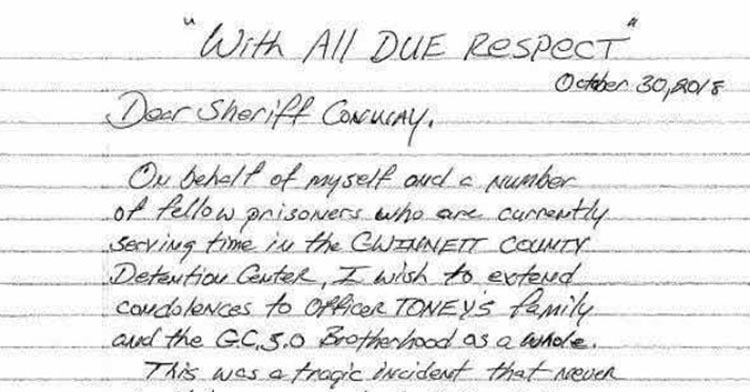 "With All DUE RESPECT"
October 30, 2018
Dear Sheriff CONWAY,
On behalf of myself and a number
of fellow prisoners who are currently
serving time in the GWINNETT COUNTY
Detention Center, I wish to extend
condolences to OFFICER TONEY'S family
and the G.C.S.O Brotherhood as a whole.
This was a tragic incident that never